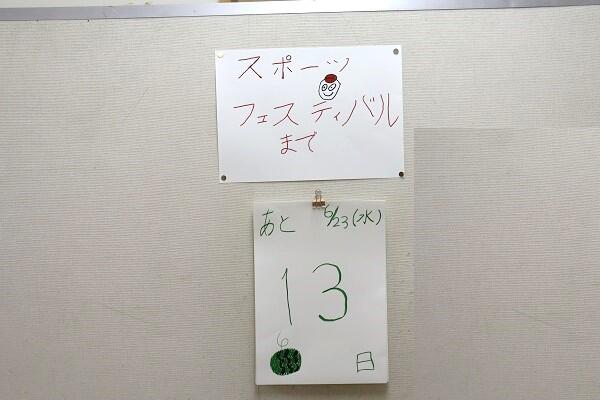 スポーツ
フェスティバル
まで
あと 6/23(水)
13
日